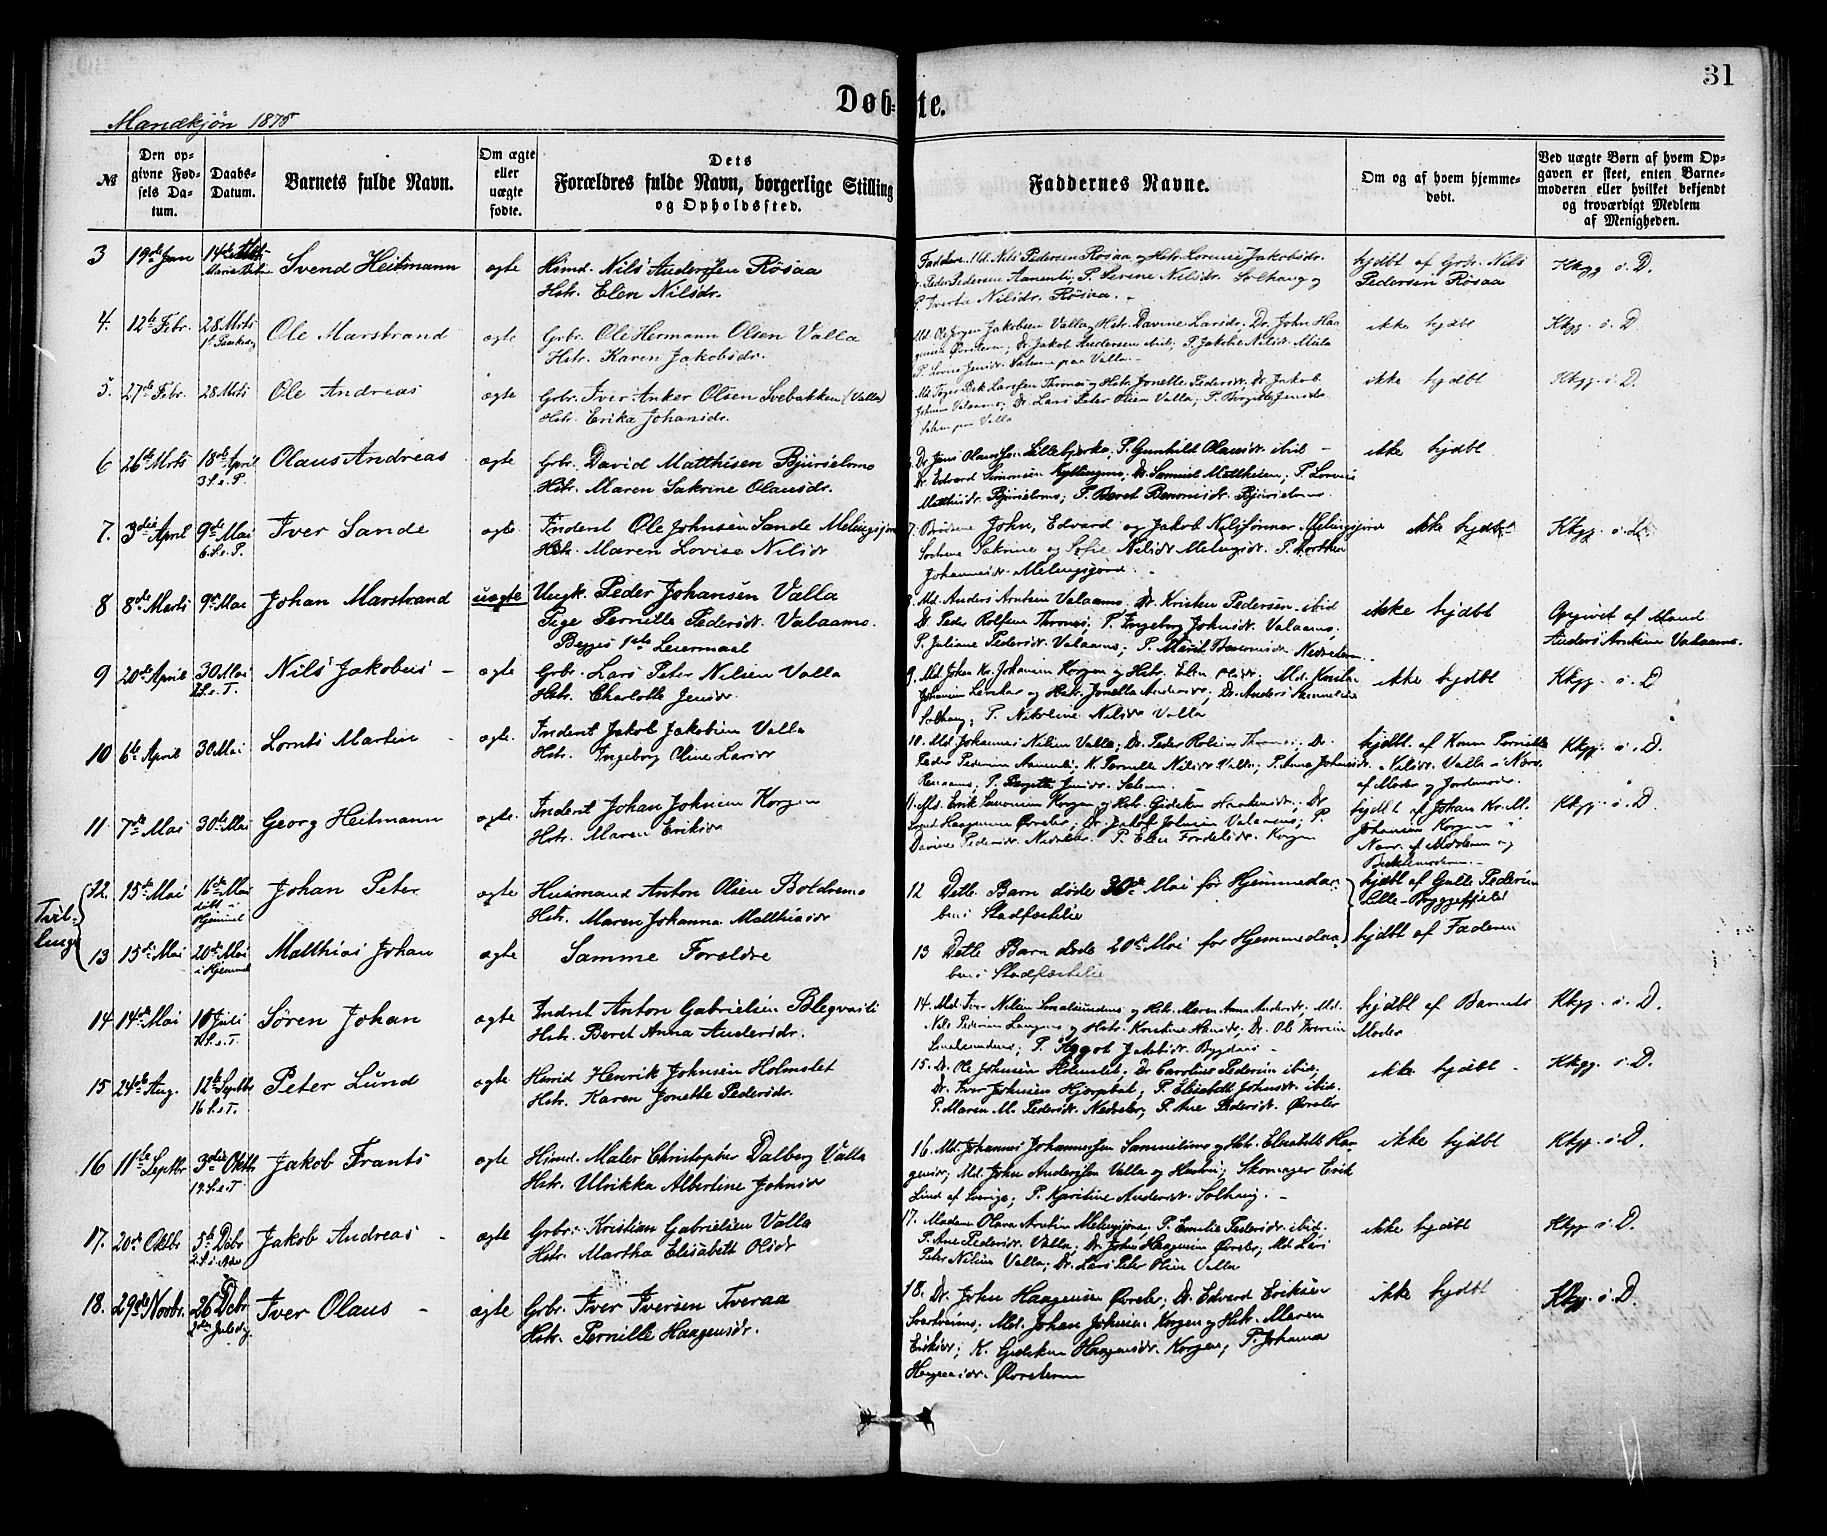 31
Døb-te.
Mandkjøn 1875
№
Den op-
givne Fød-
sels Da-
tum.
Daabs-
Datum.
Barnets fulde Navn.
Om ægte
eller
uægte
fødte.
Dets
Forældres fulde Navn, borgerlige Stilling
og Opholdssted.
Faddernes Navne.
Om og af hvem hjemme-
døbt.
Ved uægte Børn af hvem Op-
gaven er skeet, enten Barne-
moderen eller hvilket bekjendt
og troværdigt Medlem
af Menigheden.
3 19de Jan 14de Svend Heitmann ægte Huusmd. Nils Andersen Røsaa
Hstr. Elen Nilsdr.
Faddere. Md. Nils Pedersen Røsaa og Hstr. Lorense Jakobsdr.
Peder Pedersen Aanenli, P. Serine Nilsdr. Solhaug og
P. Nilsdr. Røsaa.
hjdbt af Grbr. Nils
Pedersen Røsaa
Kkgg. i. D.
4. 12te Febr. 28 Mrts Ole Marstrand ægte Grbr. Ole Hermann Olsen Valla
Hstr. Karen Jakobsdr.
Jakobsen Valla og Hstr. Davine Larsdr; Dr. John Haa
gensen Øvreler; Dr. Jakob Andersen ibid; P. Jakobe Nilsdr.
P. Jensdr. Solem paa Valla.
ikke hjdbt
Kkgg. i. D.
5. 27de Febr. 28 Mrts Ole Andreas ægte Grbr. Iver Anker Olsen Svebakken (Valla)
Hstr. Erika Johansdr.
Larssen Thronæs og Hstr. Jonette Pedersdr. Dr. Jakob
Johnsen Valaamo; Dr. Lars Peter Olsen Valla; P. Birgitte Jensdr.
Solem paa Valla
ikke hjdbt
Kkgg. i. D.
6 26de Mrts 18de April Olaus Andreas ægte Grbr. David Matthisen Bjurselvmo
3 S. e. P.
Hstr. Maren Sakrine Olausdr.
Dr. Jens Olaussen Lillebjerka; P. Gunhild Olausdr. ibid -
Dr. Edvard Simonsen Nyllingmo; Dr. Samuel Matthisen; P. Lornse
Matthisdr. Bjurselvmo; P. Beret Benonisdr. Bjurselvmo.
ikke hjdbt
7. 3die April 9de Mai Iver Sande ægte Inderst Ole Johnsen Sande Melingsjorn
6 S. e. P.
Hstr. Maren Lovise Nilsdr
7. Brødrene John, Edvard og Jakob Nilssønner Melingsjorn
Søstrene Sakrine og Sofie Nilsdr Melingsjr. P. Marthea
Johannesdr. Melingsjord.
ikke hjdbt
Kkgg. i. D.
8 8de Marts 9de Mai Johan Marstrand uægte Ungk. Peder Johansen Valla
Pige Pernille Pedersdr. Valaamo.
Begges 1ste Leiermaal
8. Md. Anders Arntsen Valaamo, Dr. Kristen Pedersen ibid
Dr. Peder Rolfsen Thronæs; P. Ingeborg Johnsdr. Valaamo;
P. Juliane Pedersdr. Valaamo; P. Marit Nedreler.
ikke hjdbt
Opgivet af Mand
Anders Arntsen Valaamo.
9 20de April 30 Mai Nils Jakobus - ægte Grbr. Lars Peter Nilsen Valla
Hstr. Charlotte Jensdr
9. Md. Johan Kr. Johansen Korgen og Hstr. Elen Olsdr; Md. Kristen
Johansen og Hstr. Jonetta Andersdr; Dr. Anders Samuelsen
Solhaug; P. Nikoline Nilsdr Valla
ikke hjdbt
Kkgg. i. D
10 6te April 30 Mai Lornts Martin - ægte. Inderst Jakob Jakobsen Valla
Hstr. Ingeborg Oline Larsdr
10. Md. Johannes Nilsen Valla; Dr. Peder Rolfsen Thronæs; Dr.
Peder Pedersen Aanenli. K. Pernelle Nilsdr. Valla; P. Anne Johansdr.
P. Birgitte Jensdr. Solem -
hjdbt. af Konen Pernille
Nilsdr. Valla i Nærv.
af Moder og Jordemoder.
Kkgg. i. D.
11 7de Mai 30te Mai Georg Heitmann ægte. Inderst Johan Johnsen Korgen
Hstr. Maren Eriksdr
11. Md. Erik Korgen og Hstr. Gidsken Haakensdr.; Dr
Svend Haagensen Øvreler; Dr. Jakob Johnsen Valaamo; P
Davine Pedersdr. Nedreler. P. Elen Fordelsdr. Korgen
hjdbt af Johan Kr. M.
Johansen Korgen i
Nærv. af Moderen og
Kkgg. i. D.
Tvil-
linger
12. 15de Mai 16de Mai Johan Peter ægte Husmand Anton Olsen Botdremo
døbt i
Hjemmet
Hstr. Maren Johanna Matthiasdr
12 Dette Barn døde 30te Mai før Hjemmedaa-
ben i Stadfæstelse
hjdbt af Gulle Pedersen
Lille-Bryggefjeld
13 15de Mai 20de Mai Matthias Johan ægte Samme Forældre
i Hjemmet
13 Dette Barn døde 20de Mai før Hjemmedaa-
ben i Stadfæstelse
hjdbt af Faderen
14 14de Mai 18 Juli Søren Johan ægte Indrst Anton Gabrielsen Blegvasli
Hstr. Beret Anna Andersdr.
14. Md. Iver Nilsen Smalsundmo og Hstr. Maren Anna Andersdr. Md.
Nils Pedersen og Hstr. Kristine Hansdr; Dr. Ole Iversen
Smalsundmo; P. Jakobsdr. Bygdaas -
hjdbt af Barnets
Moder
Kkgg. i. D.
15 24de Aug. 12te Septbr Peter Lund ægte Husmd Henrik Johnsen Holmslet
16 S. e. T.
Hstr. Karen Jonette Pedersdr.
15. Dr. Ole Johnsen Holmslet. Dr Carolius Pedersen ibid;
Dr. Iver Johnsen Hjortdal; P. Elisabeth Johnsdr. ibid.
P. Maren M. Pedersdr. Nedreler; P. Ane Pedersdr. Øvreler
ikke hjdbt -
Kkgg. i. D.
16 11te Septbr 3die Oktbr Jakob Frants ægte Husmd. Maler Christopher Dalberg Valla
19. S. e. T
Hstr. Ulrikka Albertine Johnsdr
16. Md. Johannes Johannessen Samuelsmo og Hstr. Elisabeth Haa-
gensdr; Md. John Anderssen Valla og Hustru; Skomager Erik
Lind af Sverige; P. Kjerstine Andersdr. Solhaug. -
ikke hjdbt
Kkgg. i. D.
17. 20de Oktbr 5te Debr Jakob Andreas - ægte Grbr. Kristian Gabrielsen Valla
2. S. i Adv.
Hstr. Martha Elisabeth Olsdr
17. Madam Olava Arntsen Melingsjorn; P. Emilie Pedersdr. ibid.
P. Ane Pedersdr. Valla; Dr. John Haagensen Øvreler; Md. Lars
Peter Nilsen Valla; Dr. Lars Peter Olsen Valla
ikke hjdbt
Kkgg. i. D.
18. 29de Novbr. 26 Debr Iver Olaus - ægte Grbr. Iver Iversen Tveraa
2den Juledg.
Hstr. Pernille Haagensdr.
18. Dr. John Haagensen Øvreler; Dr. Edvard Eriksen
Svartvasmo; Md. Johan Johnsen Korgen og Hstr. Maren
Eriksdr; K. Gidsken Haagensdr. Korgen; P. Johanna
Haagensdr. Øvreleren
ikke hjdbt
Kkgg. i. D.